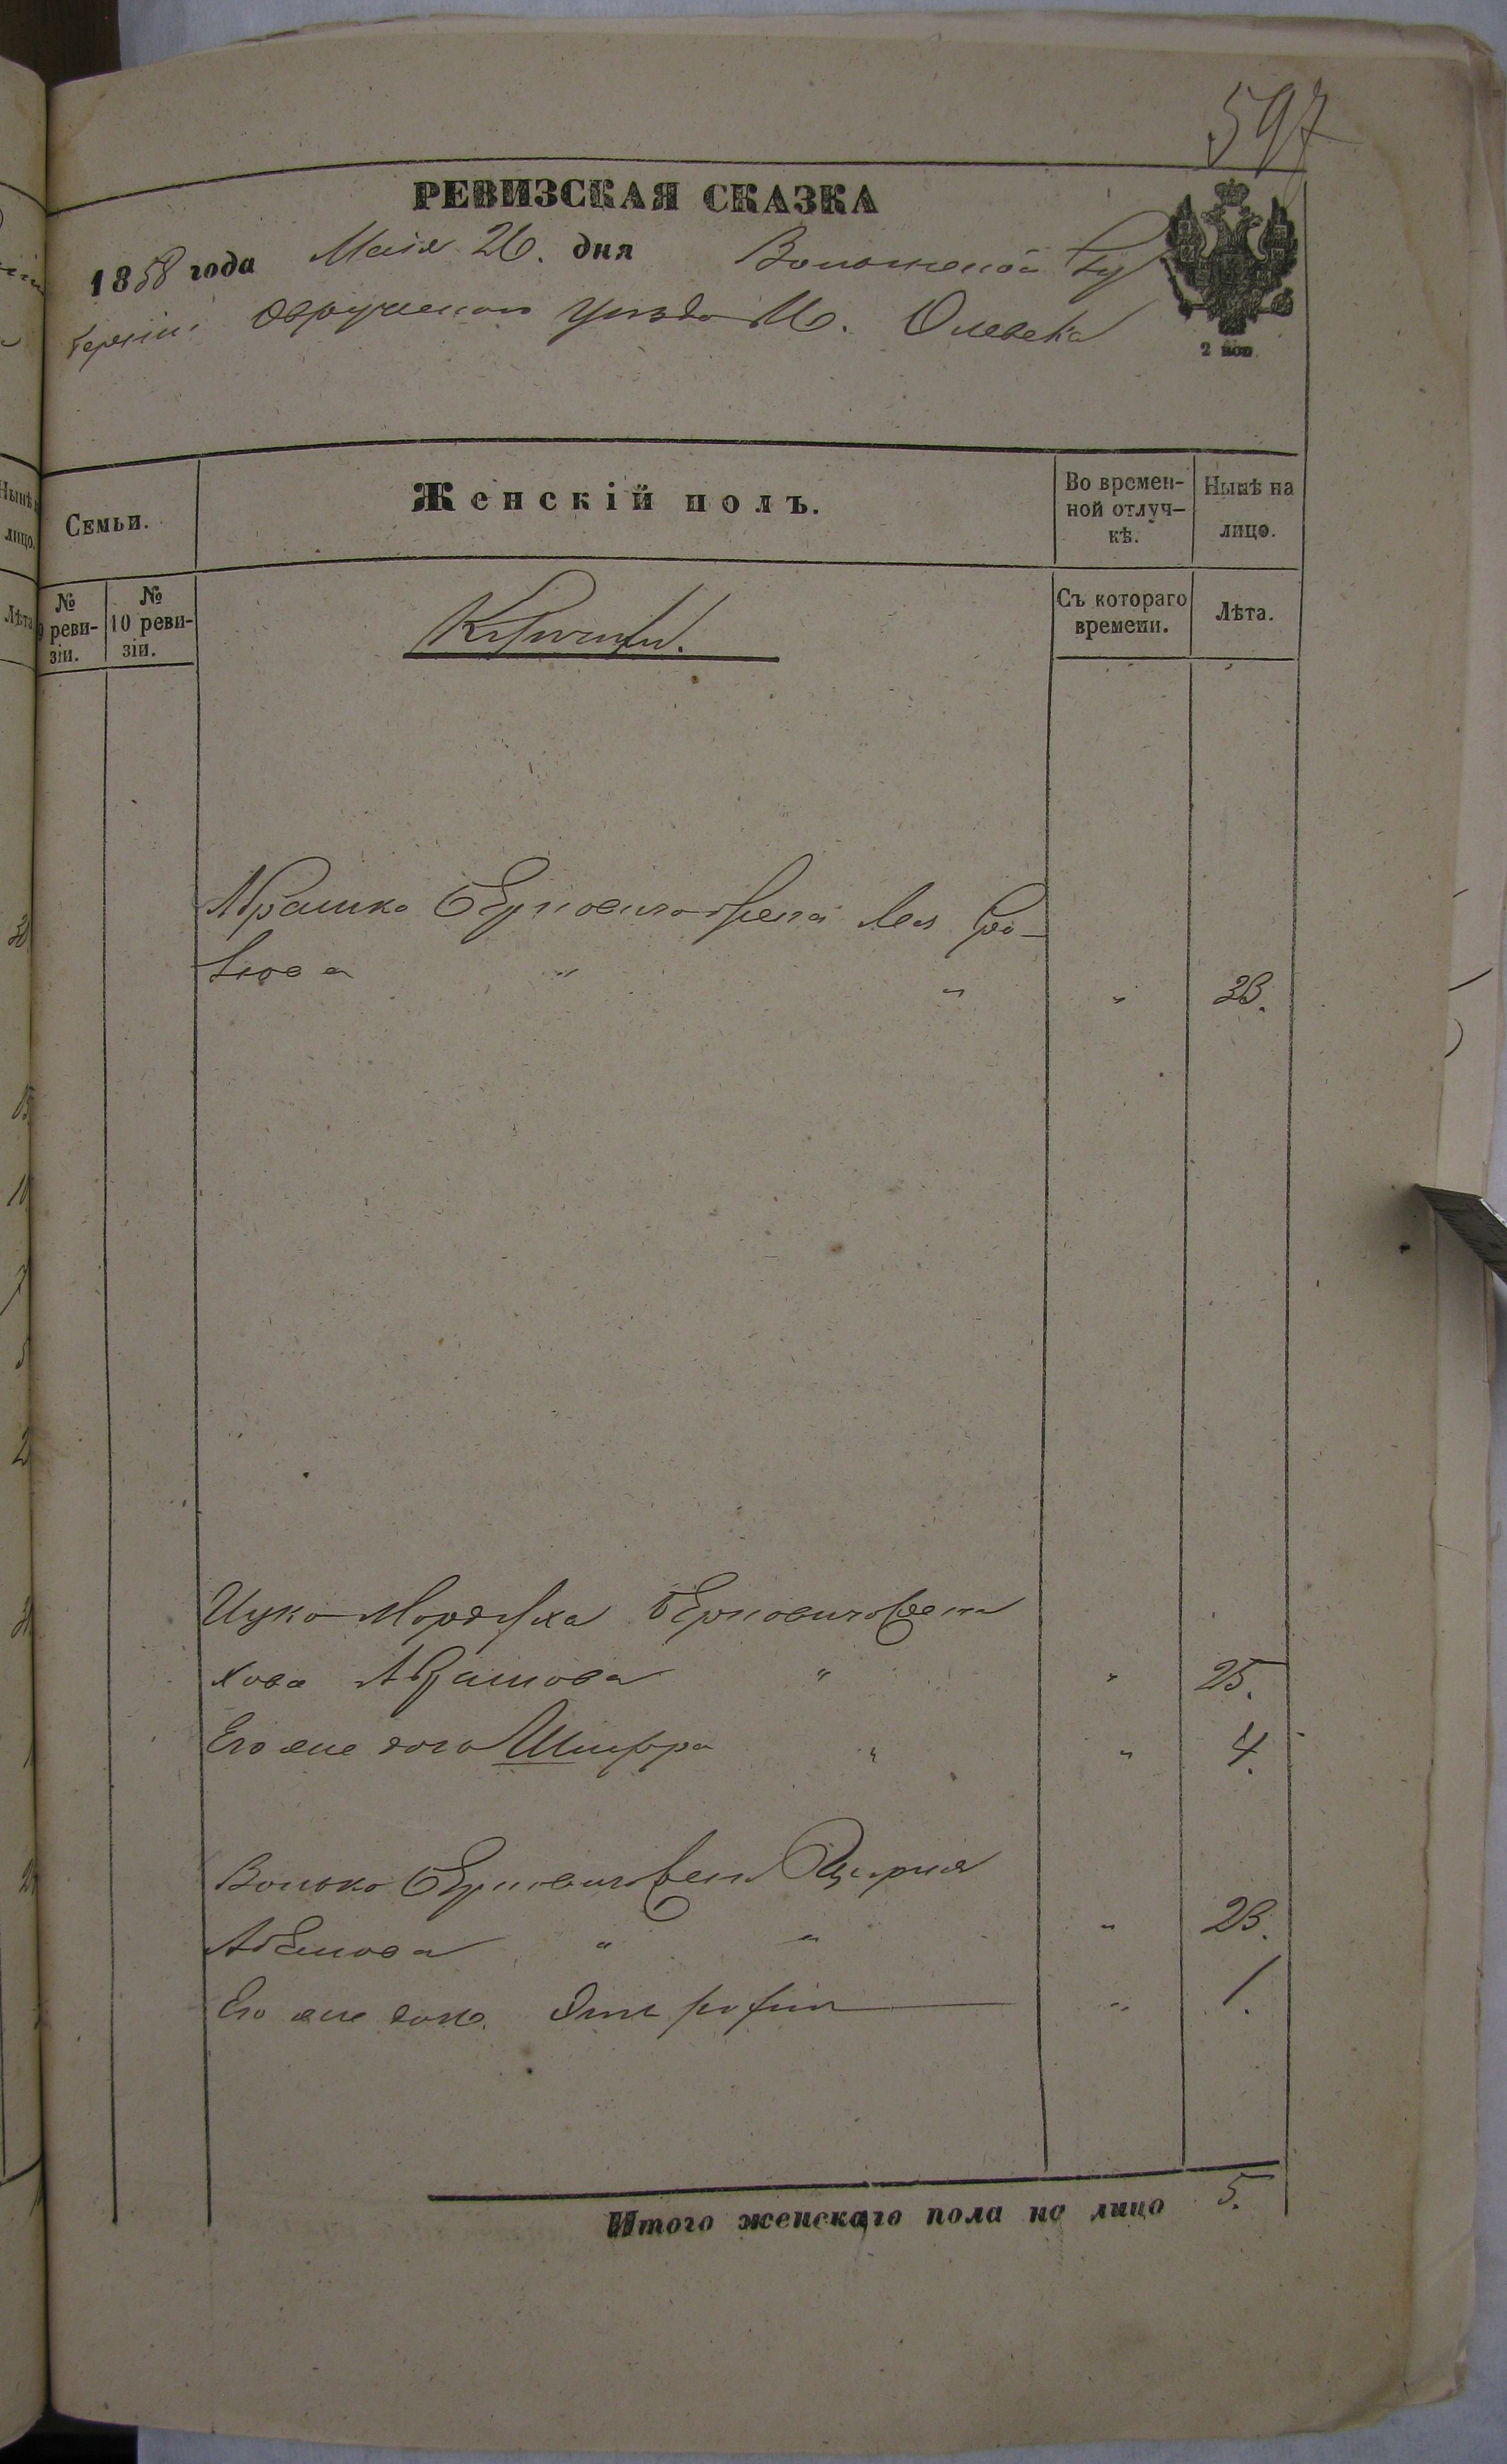 597
РЕВИЗСКАЯ СКАЗКА
1858 года Маія 26. дня Волынской Гу
берніи Овручскаго уѣзда М. Олевска
2 коп.
Семьи.
Женскій полъ.
Во времен-
ной отлуч-
кѣ.
Нынѣ на
лицо.
№
9 реви-
зіи.
№
10 реви-
зіи.
Съ котораго
времени.
Лѣта.
Абрамка Берковича жена Лея
" " " 23.
Ицко Мордуха Берковича жена
Хова Абрамова " " 25.
Его же дочь Шифра " " 4.
Волько Берковича жена
" " " 23.
Его же дочь " 1.
Итого женскаго пола на лицо 5.